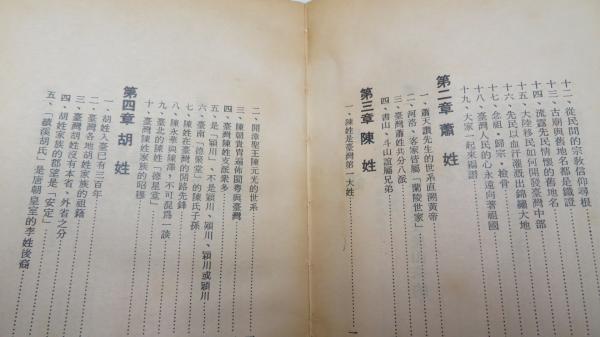 十二、從民間的宗教信仰尋根
十三、古廟與舊地名都是鐵證
十四、流露先民情懷的舊地名
十五、大陸移民如何開發臺灣中部
十六、先民以血汗灌溉出錦繡大地
十七、念祖、歸宗、檢骨
十八、臺灣人民的心永遠向著祖國
十九、大家一起來橫譜
第二章 蕭 姓
一、蕭天讚先生的世系直溯黃帝
二、河洛、客家皆屬「蘭陵世家」
三、臺灣蕭姓共分八派
四、書山、斗山誼屬兄弟
第三章 陳 姓
一、陳姓是臺灣第一大姓
二、開漳聖王陳元光的世系
三、陳朝貴胄遍佈閩粵與臺灣
四、臺灣陳姓支派衆多
五、是「潁川」、不是潁川、潁川或穎川
六、臺南「德聚堂」的陳氏子孫
七、陳姓在臺灣的開路先鋒
八、陳永華與陳澤，不可混爲一談
九、臺北的陳姓「德星堂」
十、臺灣陳姓家族的昭穆
第四章 胡 姓
一、胡姓入臺已有三百年
二、臺灣各地胡姓家族的祖籍
三、臺灣胡姓沒有本省、外省之分
四、胡姓家族的郡望是「安定」
五、「績溪胡氏」是唐朝皇室的李姓後裔